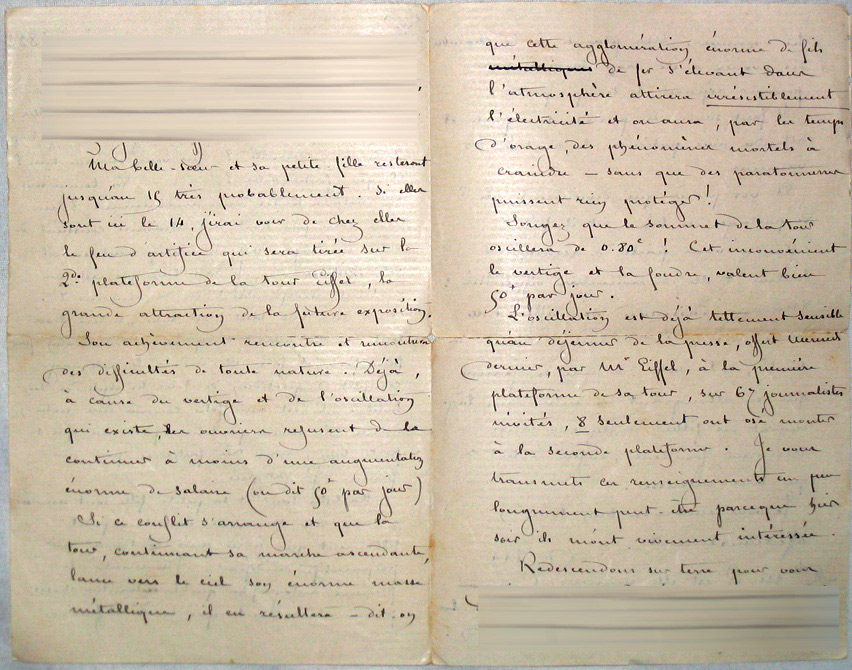 Ma belle-sœur et sa petite fille resteront
jusqu'au 15 très probablement. Si elles
sont ici le 14, j'irai voir de chez elles
le feu d'artifice qui sera tirée sur la
2de plateforme de la tour Eiffel, la
grande attraction de la future exposition.
Son achèvement rencontre et rencontrera
des difficultés de toute nature. Déjà,
à cause du vertige et de l'oscillation
qui existe, les ouvriers refusent de la
continuer à moins d'une augmentation
énorme de salaire (on dit 50f par jour)
Si ce conflit s'arrange et que la
tour, continuant sa marche ascendante,
lance vers le ciel son énorme masse
métallique, il en résultera – dit-on
que cette agglomération énorme de fils
métalliques de fer s'élevant dans
l'atmosphère attirera irrésistiblement
l'électricité et on aura, par les temps
d'orage, des phénomènes mortels à
craindre – sans que des paratonnerres
puissent rien protéger!
Songez que le sommet de la tour
oscillera de 0.80c! Cet inconvénient
le vertige et la foudre, valent bien
50f par jour.
L'oscillation est déjà tellement sensible
qu'au déjeuner de la presse, offert
dernier, par Mr Eiffel, à la première
plateforme de sa tour, sur 67 journalistes
invités, 8 seulement ont osé monter
à la seconde plateforme. Je vous
transmets ces renseignements un peu
longuement peut-être parceque hier
soir ils m'ont vivement intéressée.
Redescendons sur terre pour vous